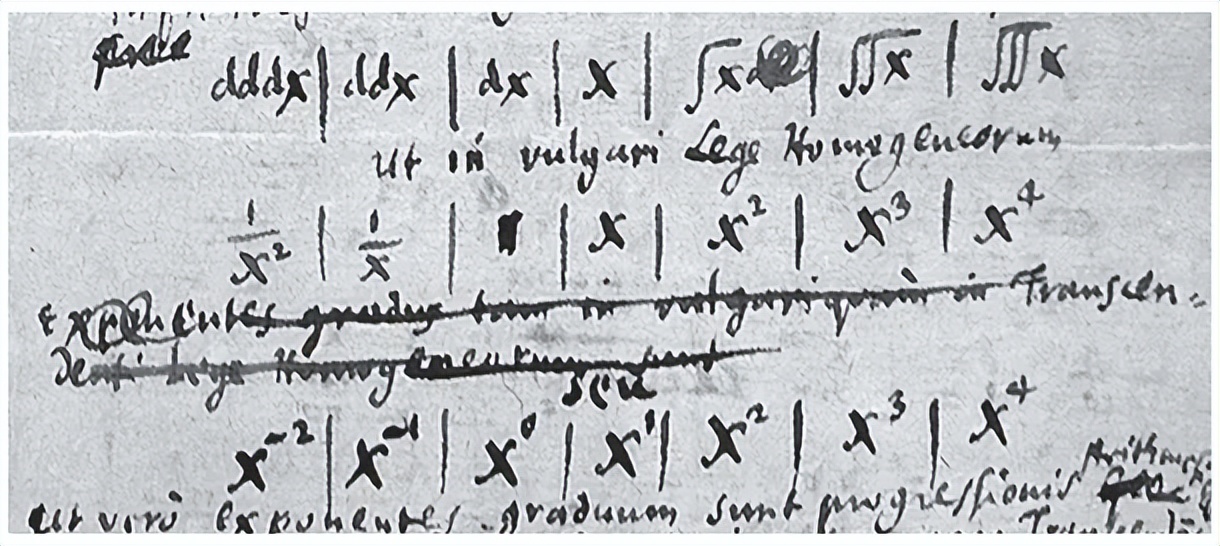 dddx | ddx | dx | x | ∫x | ∫∫x | ∫∫∫x
ut in vulgari Lege Homogeneorum
1/x² | 1/x | 1 | x | x² | x³ | x⁴
Exponentes gradus tam in vulgari quàm in Transcen-
denti Lege Homogeneorum sunt
seu
x⁻² | x⁻¹ | x⁰ | x¹ | x² | x³ | x⁴
ut verò exponentes graduum sunt progressionis